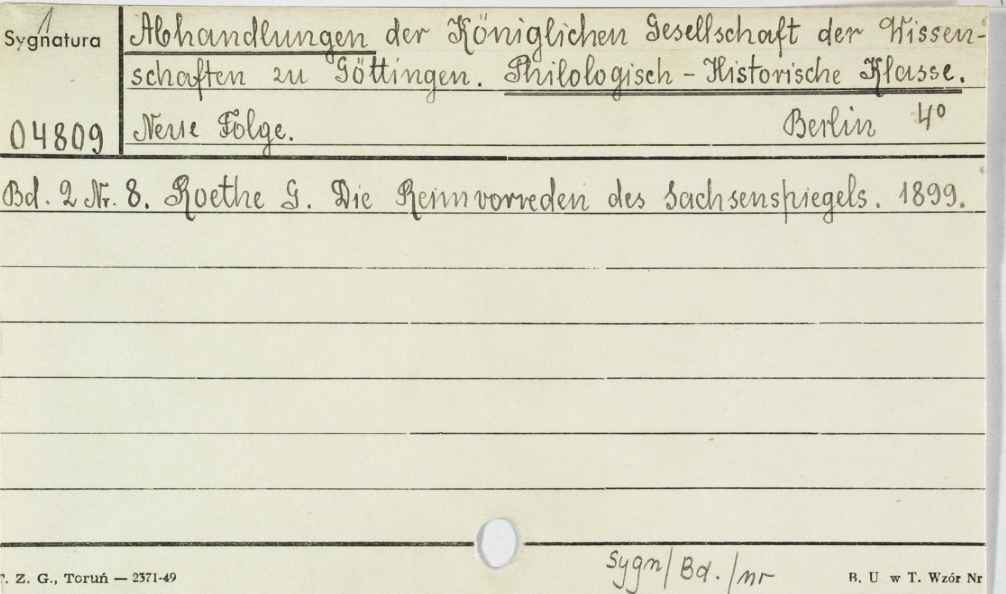 1
Sygnatura
Abhandlungen der Königlichen Gesellschaft der Wissen-
schaften zu Göttingen. Philologisch - Historische Klasse.
04809
Neue Folge. Berlin 4°
Bd. 2 Nr. 8. Roethe G. Die Reimvorreden des Sachsenspiegels. 1899.
Sygn/Bd./nr
. Z. G., Toruń — 2371-49
B. U w T. Wzór Nr